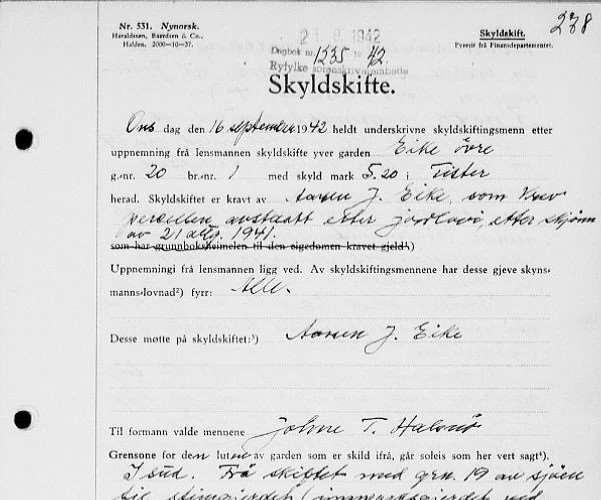 Nr. 531. Nynorsk.
Heraldssen, Baardsen & Co.,
Halden. 2000—10—37.
Skyldskift.
Fyrestt frå Finansdepartementet.
238
1942
Dagbok nr. 1235 19 42.
Ryfylke sorenskrivarembætte
Skyldskifte.
Ons dag den 16 september 1942 heldt underskrivne skyldskiftingsmenn etter
uppnemning frå lensmannen skyldskifte yver garden Eike övre
g.-nr. 20 br.-nr. 1 med skyld mark 5.20 i Fister
herad. Skyldskiftet er kravt av Aanen J. Eike, som krev
parsellen avstaatt etter jordlovi, etter skjönn
av 21 aug. 1941.
som har grunnboksheimelen til den eigedomen kravet gjeld¹.)
Uppnemningi frå lensmannen ligg ved. Av skyldskiftingsmennene har desse gjeve skyns-
manns-lovnad²) fyrr: Alle.
Desse møtte på skyldskiftet:³) Aanen J. Eike
Til formann valde mennene Johne T.
Grensone for den luten av garden som er skild ifrå, går soleis som her vert sagt⁴).
I sud. Frå skiftet med grn. 19 av sjöen
til